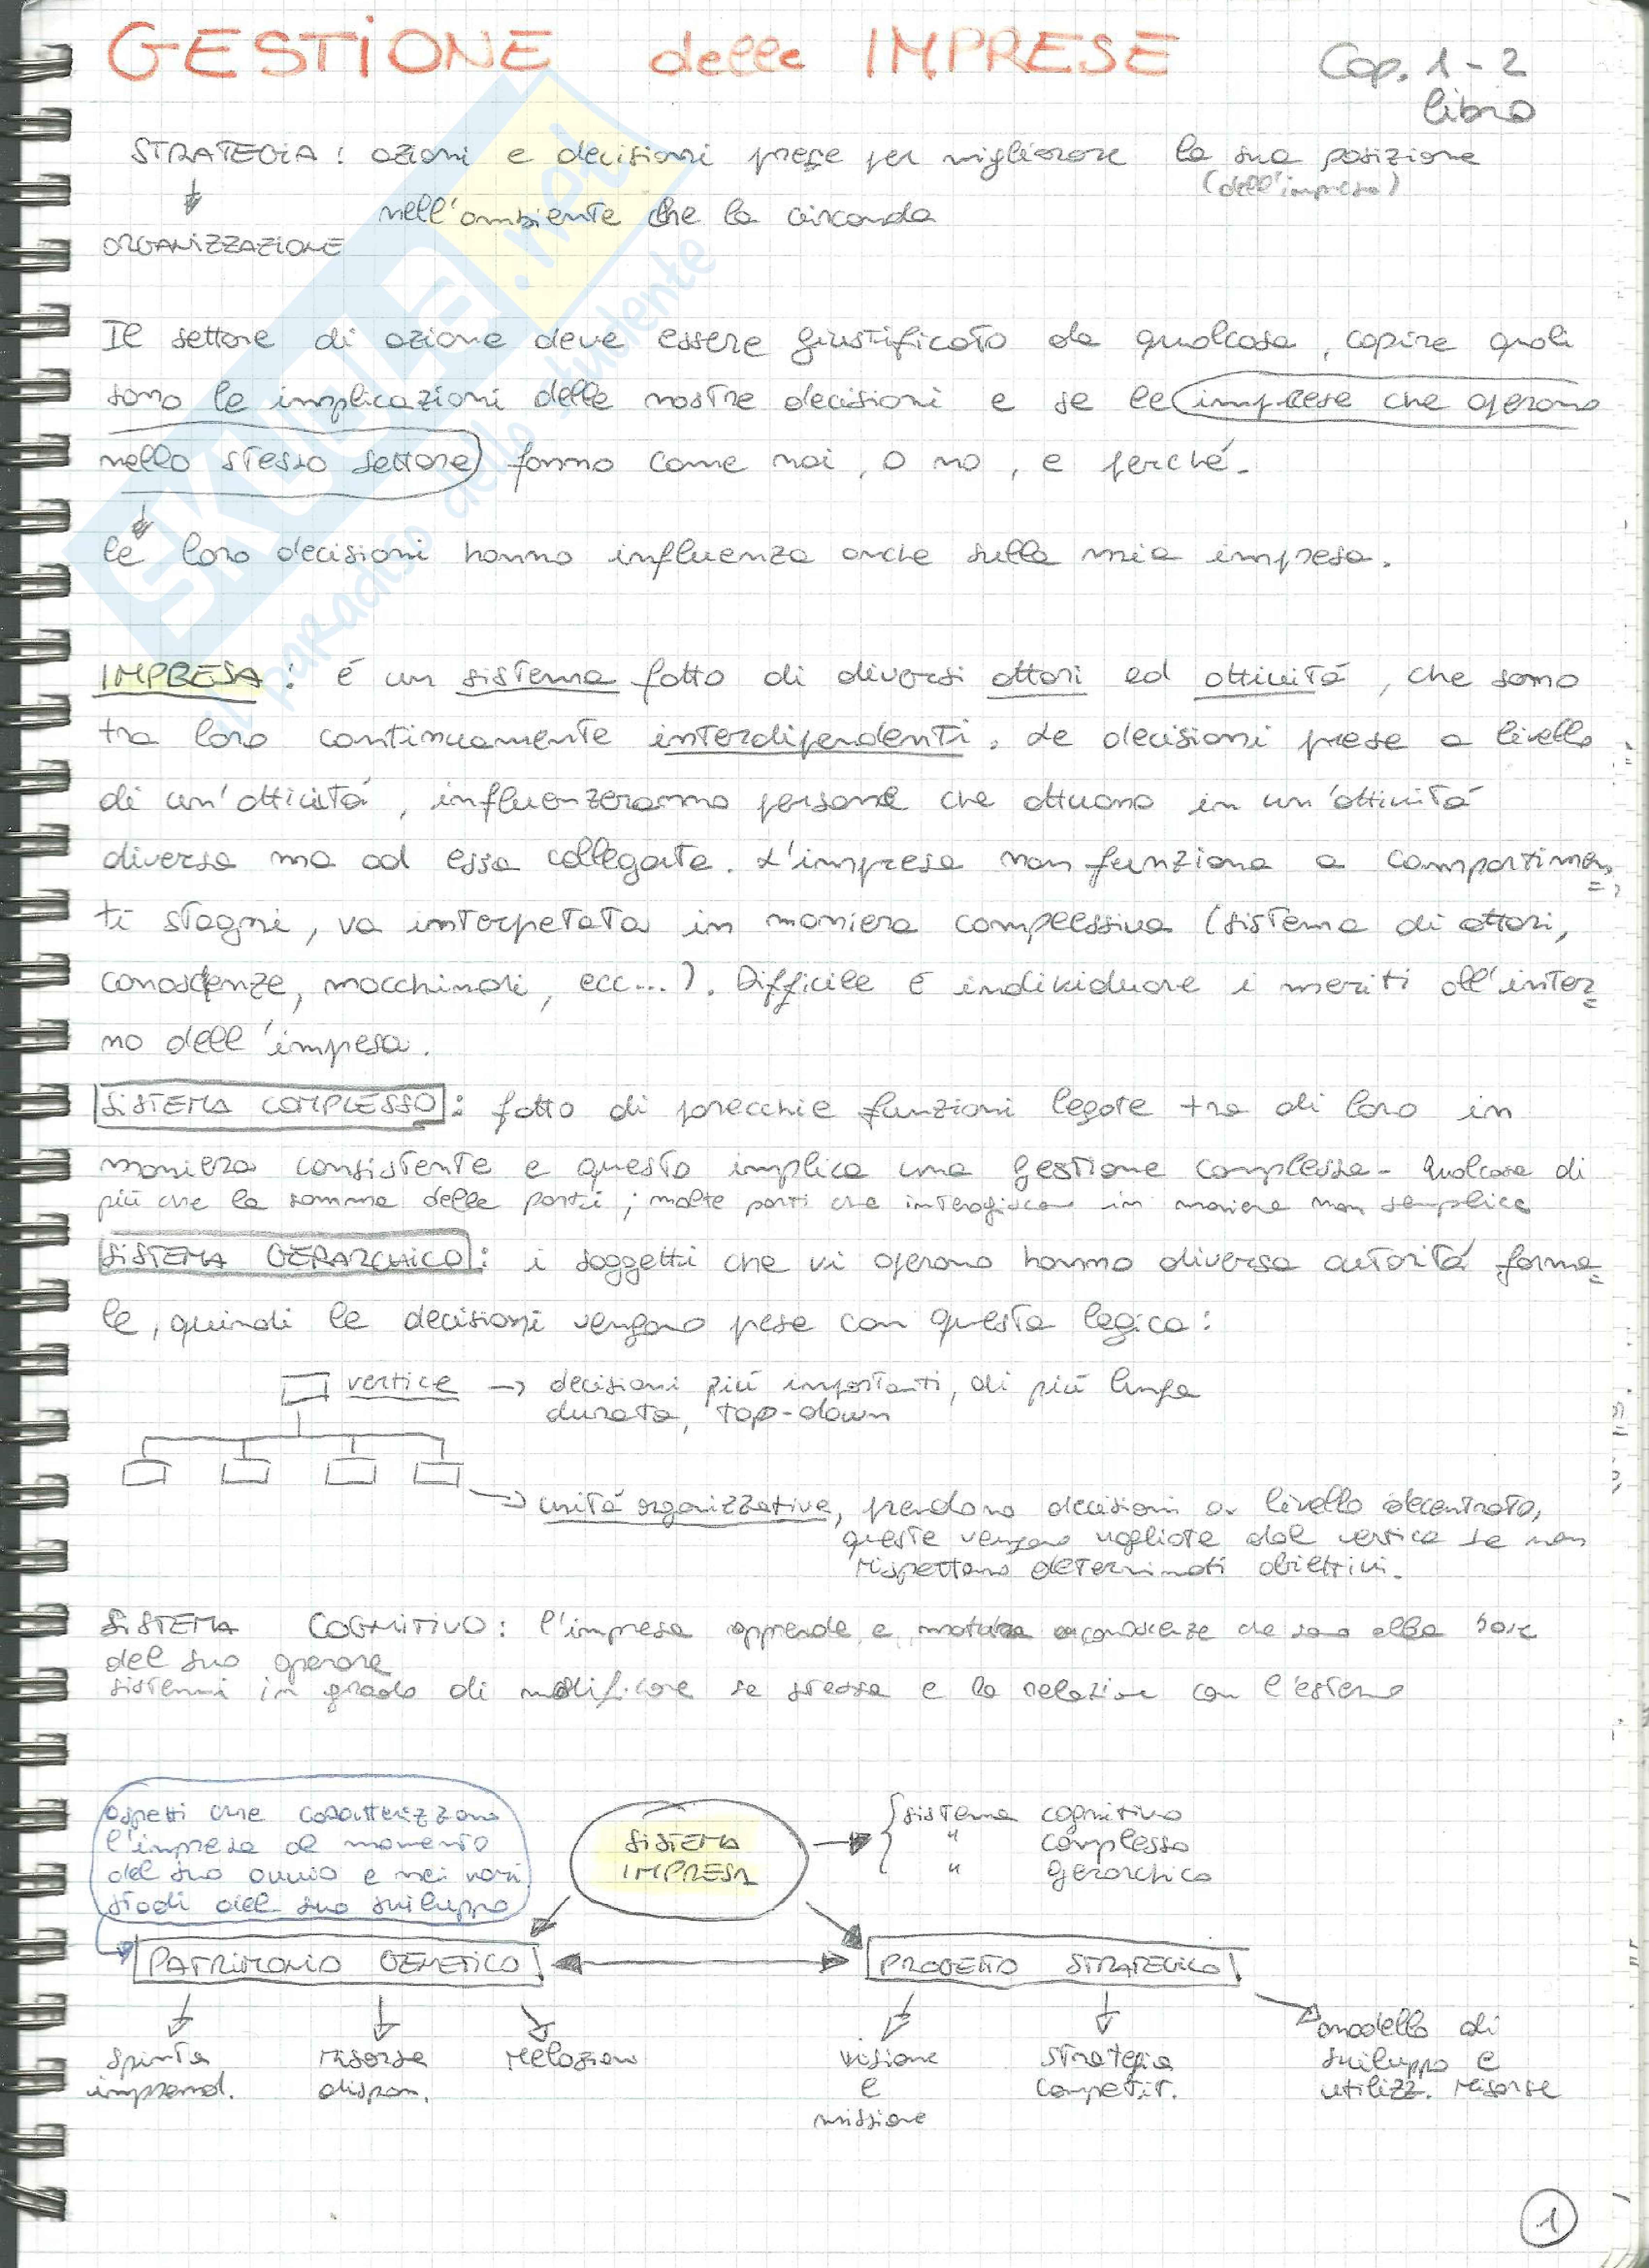 GESTIONE delle IMPRESE
Cap. 1-2
libro
STRATEGIA: azioni e decisioni prese per migliorare la sua posizione
(dell'impresa)
nell'ambiente che la circonda
ORGANIZZAZIONE
Il settore di azione deve essere giustificato da qualcosa, capire quali
sono le implicazioni delle nostre decisioni e se le imprese che operano
nello stesso settore fanno come noi, o no, e perché.
le loro decisioni hanno influenza anche sulla mia impresa.
IMPRESA: é un sistema fatto di diversi attori ed attività, che sono
tra loro continuamente interdipendenti. Le decisioni prese a livello
di un'attività, influenzeranno persone che attuano in un'attività
diversa ma ad essa collegata. L'impresa non funziona a compartimen
ti stagni, va interpetata in maniera complessiva (sistema di attori,
conoscenze, macchinari, ecc...). Difficile é individuare i meriti all'inter
no dell'impesa.
SISTEMA COMPLESSO: fatto di parecchie funzioni legate tra di loro in
maniera consistente e questo implica una gestione complessa. Qualcosa di
più che la somma delle parti; molte parti che interagiscono in maniera non semplice
SISTEMA GERARCHICO: i soggetti che vi operano hanno diversa autorità forma
le, quindi le decisioni vengono pese con questa logica:
vertice → decisioni più importanti, di più lunga
durata, top-down
→ unità organizzative, prendono decisioni a livello decentrato,
queste vengono vagliate dal vertice se non
rispettano determinati obiettivi.
SISTEMA COGNITIVO: l'impresa apprende e matura conoscenze che sono alla base
del suo operare
sistemi in grado di modificare se stessa e la relazione con l'esterno
aspetti che caratterizzano
l'impresa al momento
del suo avvio e nei vari
stadi del suo sviluppo
SISTEMA
IMPRESA
sistema cognitivo
" complesso
" gerarchico
PATRIMONIO GENETICO
PROGETTO STRATEGICO
spinta
imprend.
risorse
dispon.
relazioni
visione
e
missione
strategia
competit.
modello di
sviluppo e
utilizz. risorse
1
SKUOLA.net
il paradiso dello studente